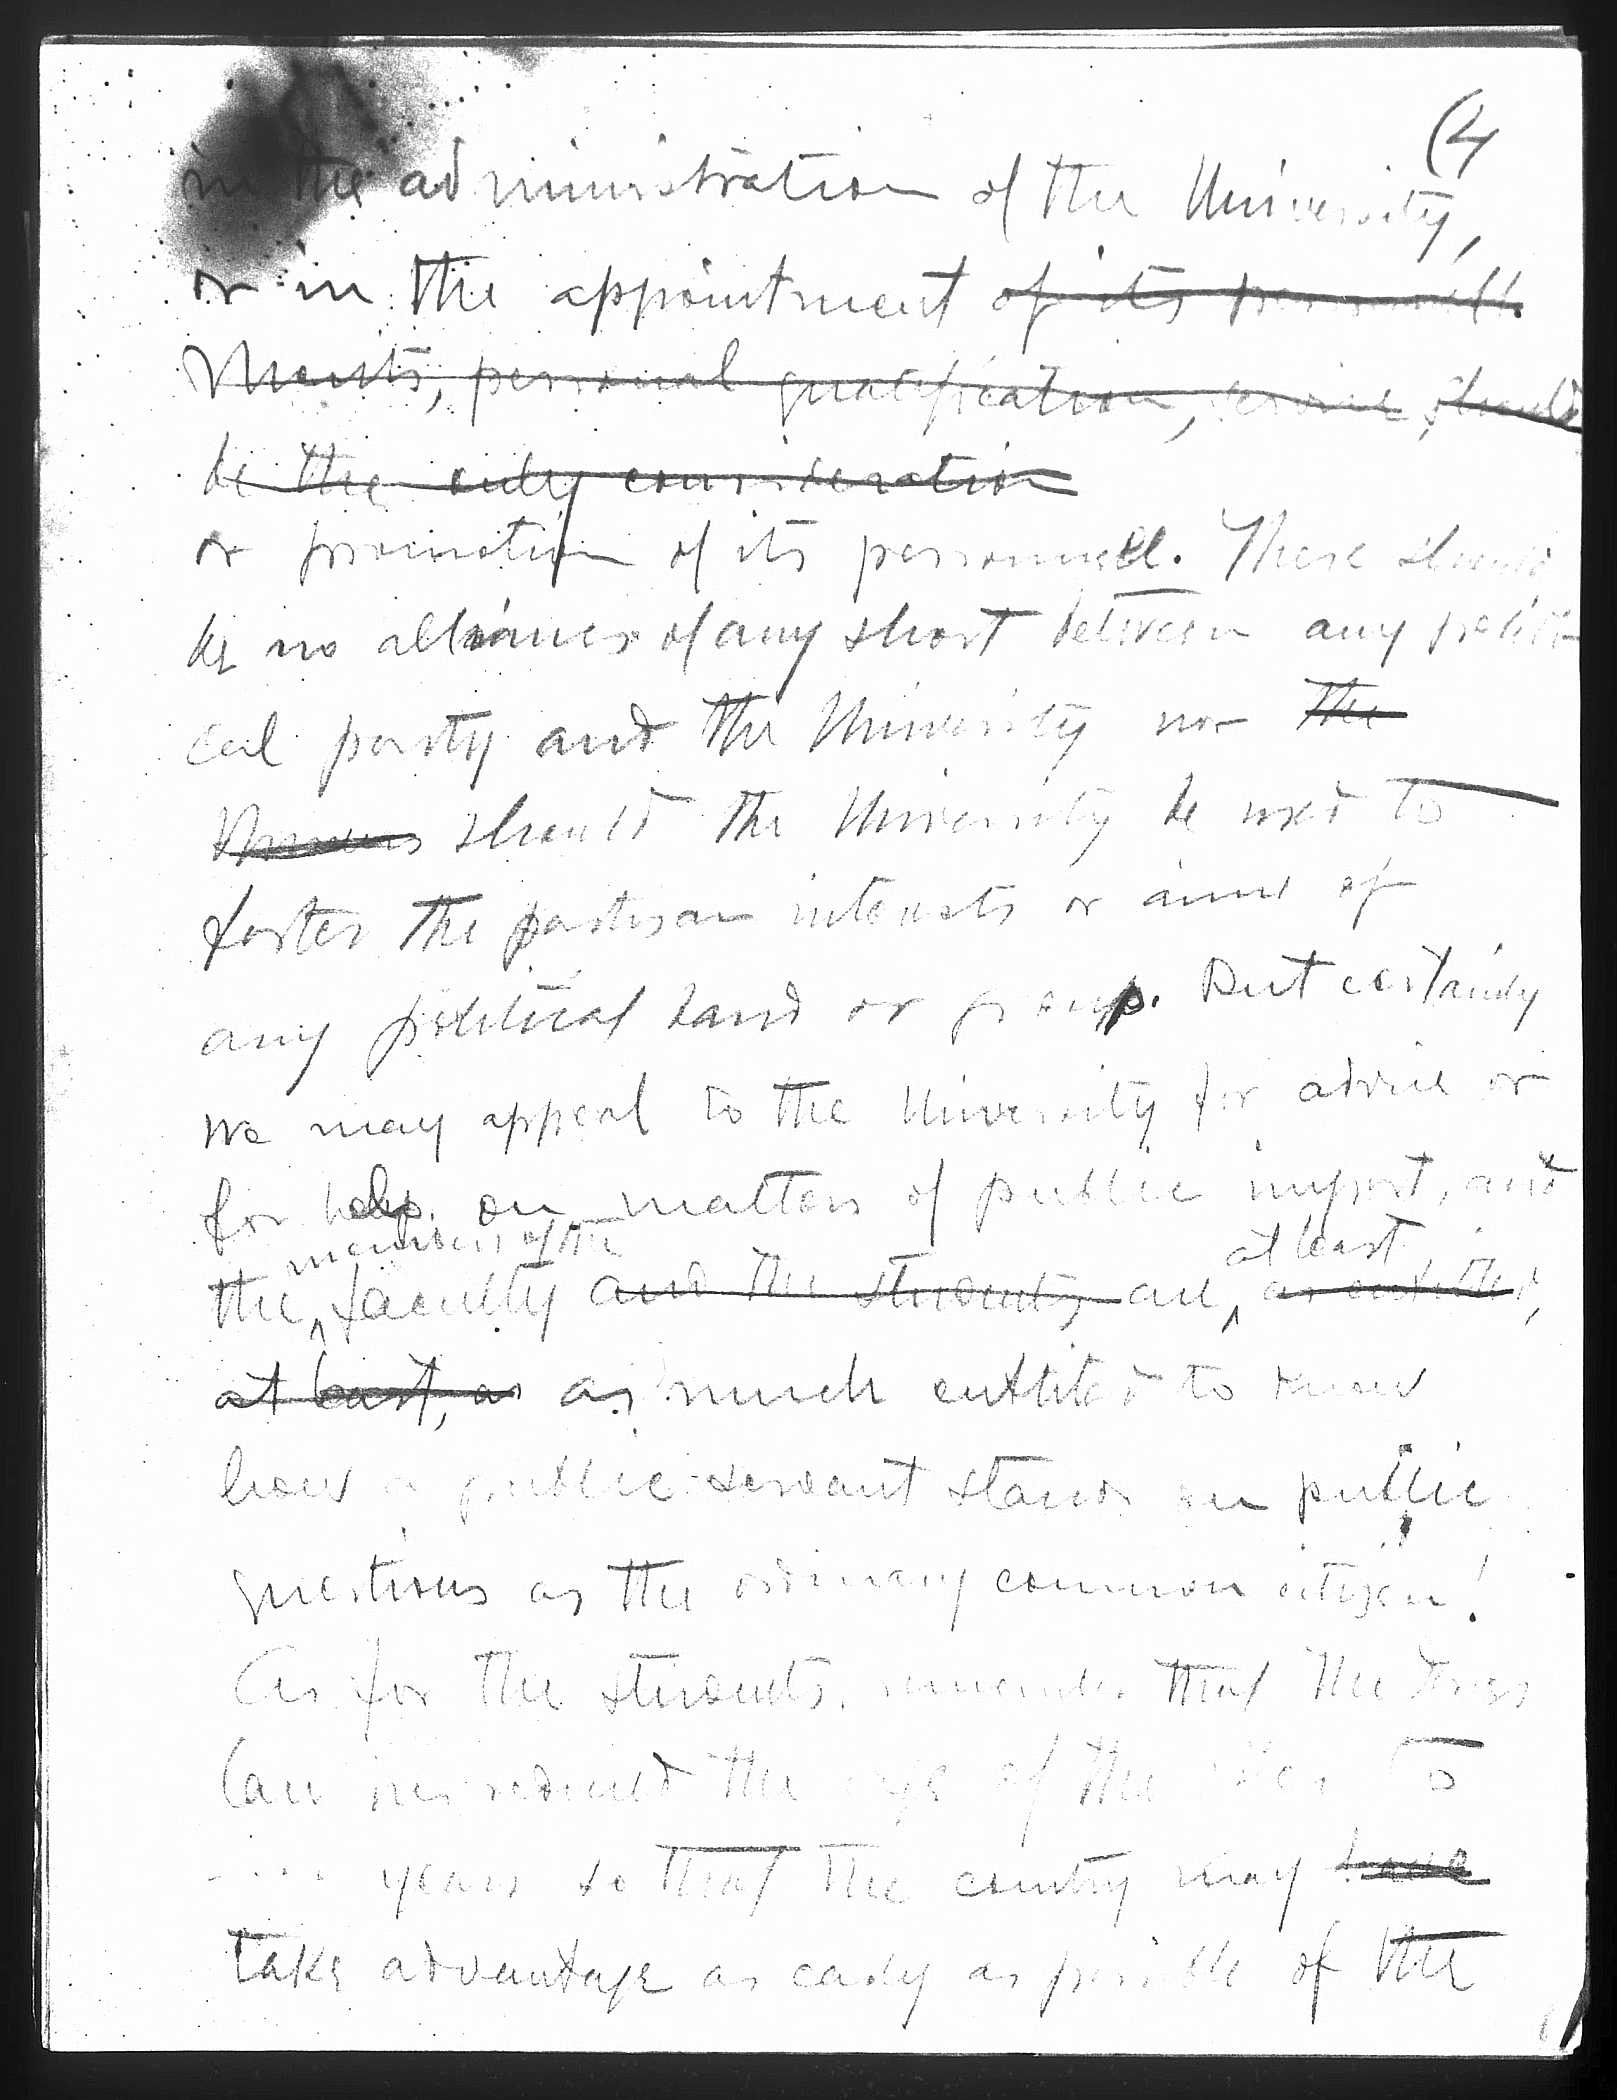 (4
in the administration of the University,
or in the appointment of its personnell.
Merits, personal qualification, service, should
be the only consideration
or promotion of its personnell. There should
be no alliances of any short between any politi-
cal party and the University nor the
should the University be used to
foster the partisan interests or aims of
any political band or group. But certainly
we may appeal to the University for advice or
for help on matters of public import, and
members of the at least
the faculty and the students are, as entitled,
at least, as as much entitled to know
how a public servant stands on public
questions as the ordinary common citizen!
As for the students, remember that the
law has reduced the age of the to
.... years so that the country may have
take advantage as early as possible of the